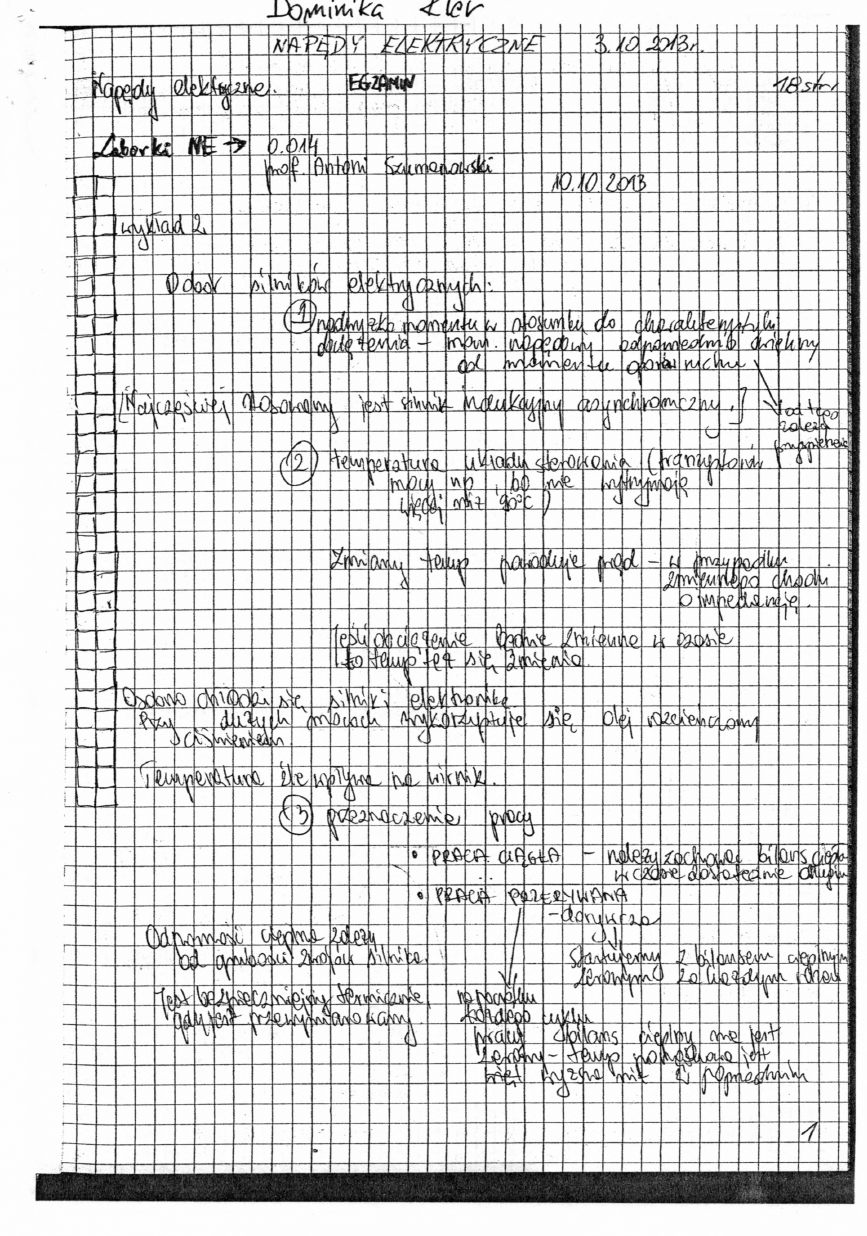 Dominika Kler
NAPĘDY ELEKTRYCZNE 3.10.2013r.
Napędy elektryczne. EGZAMIN 18 str.
Laborki NE → 0.014
prof. Antoni Szumanowski
10.10.2013
wykład 2
Dobór silników elektrycznych:
① nadwyżka momentu w stosunku do charakterystyki
obciążenia – mom. napędowy odpowiednio większy
od momentu oporu ruchu
od tego
zależą
przyspieszenie
[Najczęściej stosowany jest silnik indukcyjny asynchroniczny.]
② temperatura układu sterowania (tranzystorów
mocy np., bo nie wytrzymają
więcej niż 90°C)
Zmiany temp powoduje prąd – w przypadku
zmiennego chodzi
o impedancję.
Jeśli obciążenie będzie zmienne w czasie
to temp też się zmienia.
Osobno chłodzi się silniki elektronikę
Przy dużych mocach wykorzystuje się olej rozcieńczony
ciśnieniem.
Temperatura źle wpływa na wirnik.
③ przeznaczenie pracy
• PRACA CIĄGŁA – należy zachować bilans ciepła
w czasie dostatecznie długim
• PRACA PRZERYWANA
– dorywcza
Startujemy z bilansem cieplnym
zerowym za każdym razem
Odporność cieplna zależy
od grubości zwojów silnika.
Jest bezpieczniejszy termicznie,
gdy jest przewymiarowany
na początku
każdego cyklu
pracy bilans cieplny nie jest
zerowy – temp początkowa jest
wyższa niż w poprzednim
1